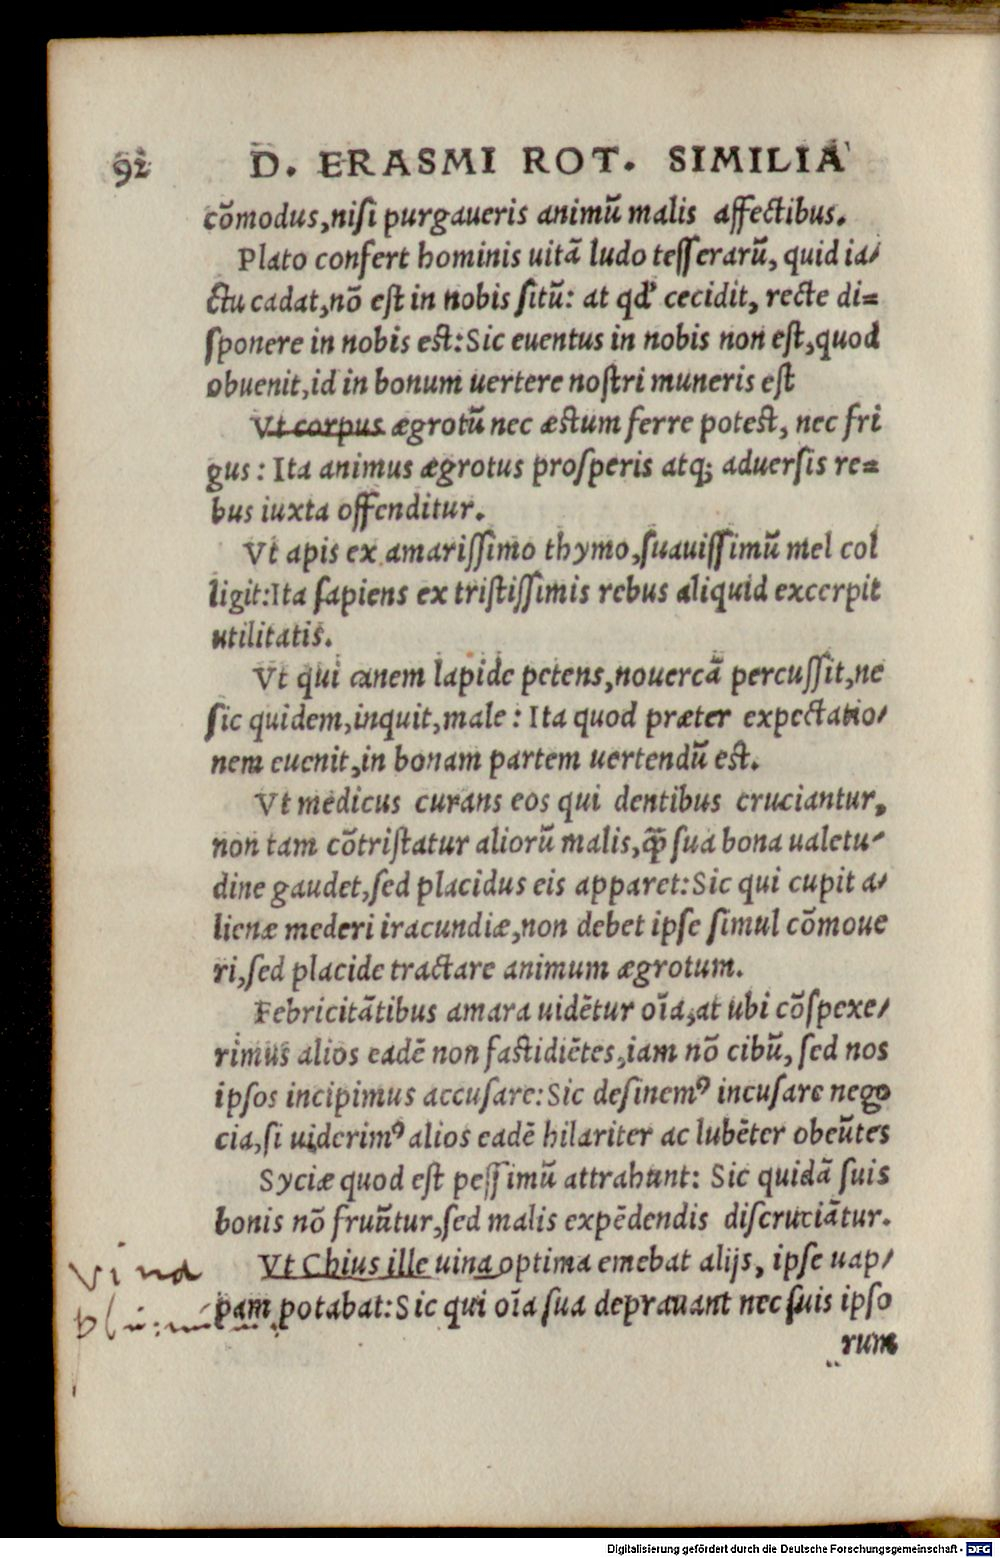 92 D. ERASMI ROT. SIMILIA
cõmodus,niſi purgaueris animũ malis affectibus.
Plato confert hominis uitã ludo teſſerarũ, quid ia/
ctu cadat,nõ eſt in nobis ſitũ: at qď cecidit, recte di=
ſponere in nobis eſt:Sic euentus in nobis non eſt,quod
obuenit,id in bonum uertere noſtri muneris eſt
Vt corpus ægrotũ nec æſtum ferre poteſt, nec fri
gus: Ita animus ægrotus proſperis atq; aduerſis re=
bus iuxta offenditur.
Vt apis ex amariſſimo thymo,ſuauiſſimũ mel col
ligit:Ita ſapiens ex triſtiſſimis rebus aliquid excerpit
utilitatis.
Vt qui canem lapide petens,nouercã percuſſit,ne
ſic quidem,inquit,male: Ita quod præter expectatio/
nem euenit,in bonam partem uertendũ eſt.
Vt medicus curans eos qui dentibus cruciantur,
non tam cõtriſtatur aliorũ malis,q̃ ſua bona ualetu/
dine gaudet,ſed placidus eis apparet:Sic qui cupit a/
lienæ mederi iracundiæ,non debet ipſe ſimul cõmoue
ri,ſed placide tractare animum ægrotum.
Febricitãtibus amara uidẽtur oĩa,at ubi cõſpexe/
rimus alios eadẽ non faſtidiẽtes,iam nõ cibũ, ſed nos
ipſos incipimus accuſare:Sic deſinemꝰ incuſare nego
cia,ſi uiderimꝰ alios eadẽ hilariter ac lubẽter obeũtes
Syciæ quod eſt peſſimũ attrahunt: Sic quidã ſuis
bonis nõ fruũtur,ſed malis expẽdendis diſcruciãtur.
Vt Chius ille uina optima emebat alijs, ipſe uap/
pam potabat:Sic qui oĩa ſua deprauant nec ſuis ipſo
rum
Vina